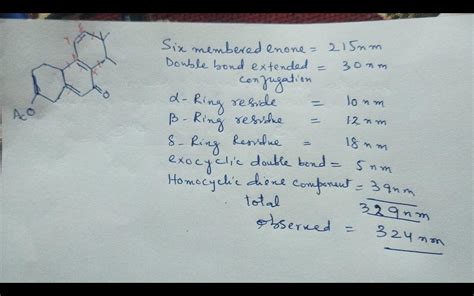 Six membered enone = 215nm
Double bond extended = 30nm
conjugation
α- Ring reside = 10nm
β- Ring residue = 12nm
δ- Ring Residue = 18nm
exocyclic double bond = 5nm
Homocyclic diene component = 39nm
total 329nm
observed = 324nm
AcO
O